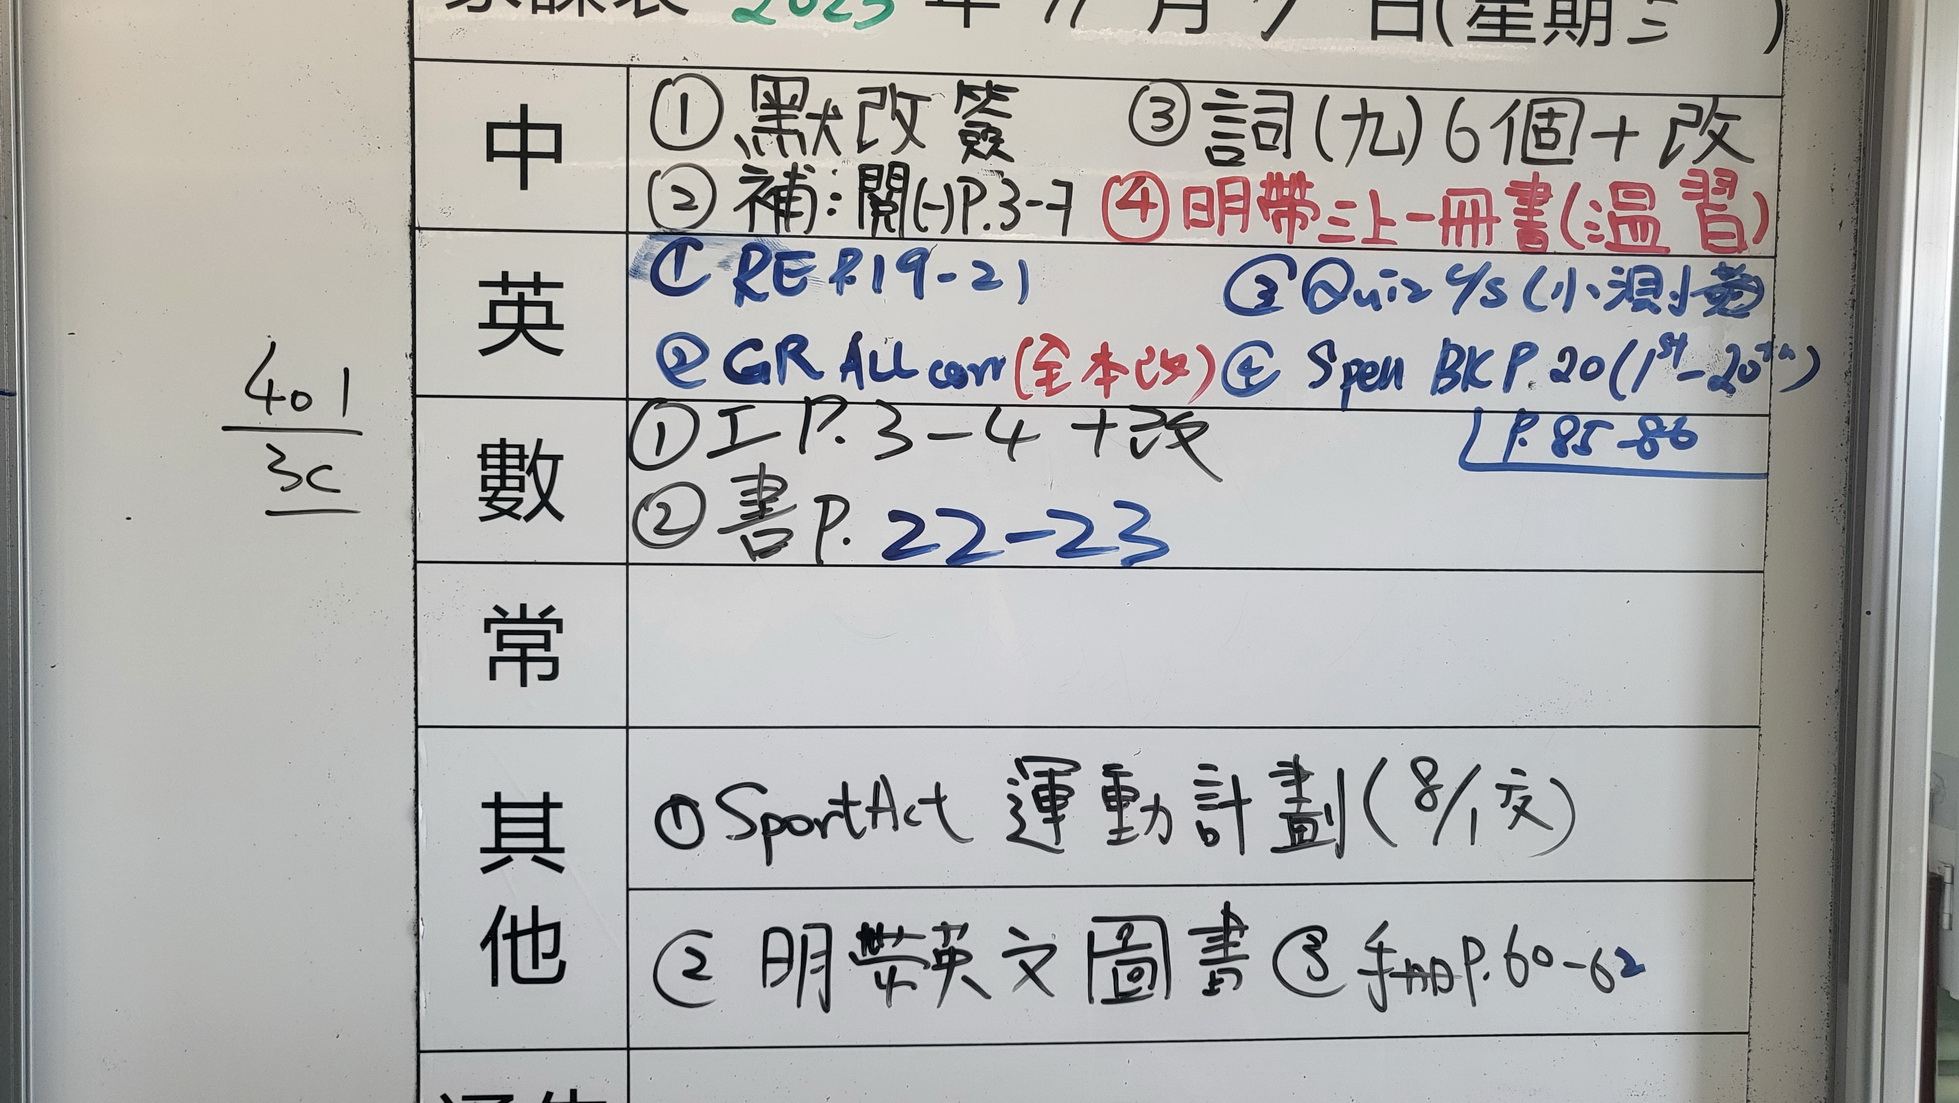 家課表 2023 年 11 月 7 日(星期三 )
中
① 默改簽 ③ 詞(九)6個+改
② 補:閱(一)P.3-7 ④明帶三上一冊書(溫習)
英
① RE P.19-21 ③ Quiz 4/5 (小測
② GR ALL corr (全本改) ④ Spell BK P.20 (1st-20th)
P.85-86
數
① 工 P.3-4 +改
② 書 P. 22-23
常
其他
① SportAct 運動計劃(8/11交)
② 明帶英文圖書 ③ 手冊P.60-62
401
3C